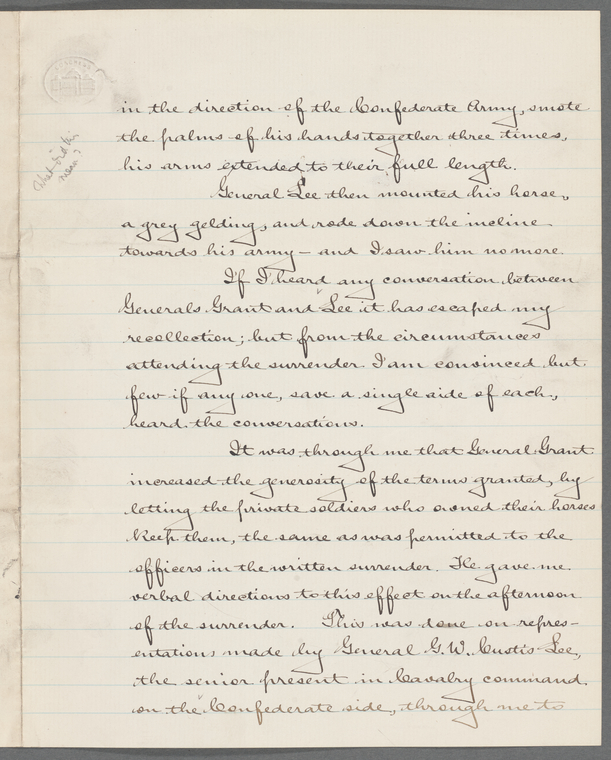 What did this
mean?
in the direction of the Confederate Army, smote
the palms of his hands together three times,
his arms extended to their full length.
General Lee then mounted his horse,
a grey gelding, and rode down the incline
towards his army — and I saw him no more.
If I heard any conversation between
Generals Grant and Lee it has escaped my
recollection; but from the circumstances
attending the surrender I am convinced but
few if any one, save a single aide of each,
heard the conversation.
It was through me that General Grant
increased the generosity of the terms granted, by
letting the private soldiers who owned their horses
keep them, the same as was permitted to the
officers in the written surrender. He gave me
verbal directions to this effect on the afternoon
of the surrender. This was done on repres-
entations made by General G.W. Custis Lee,
the senior present in Cavalry command
on the Confederate side, through me to